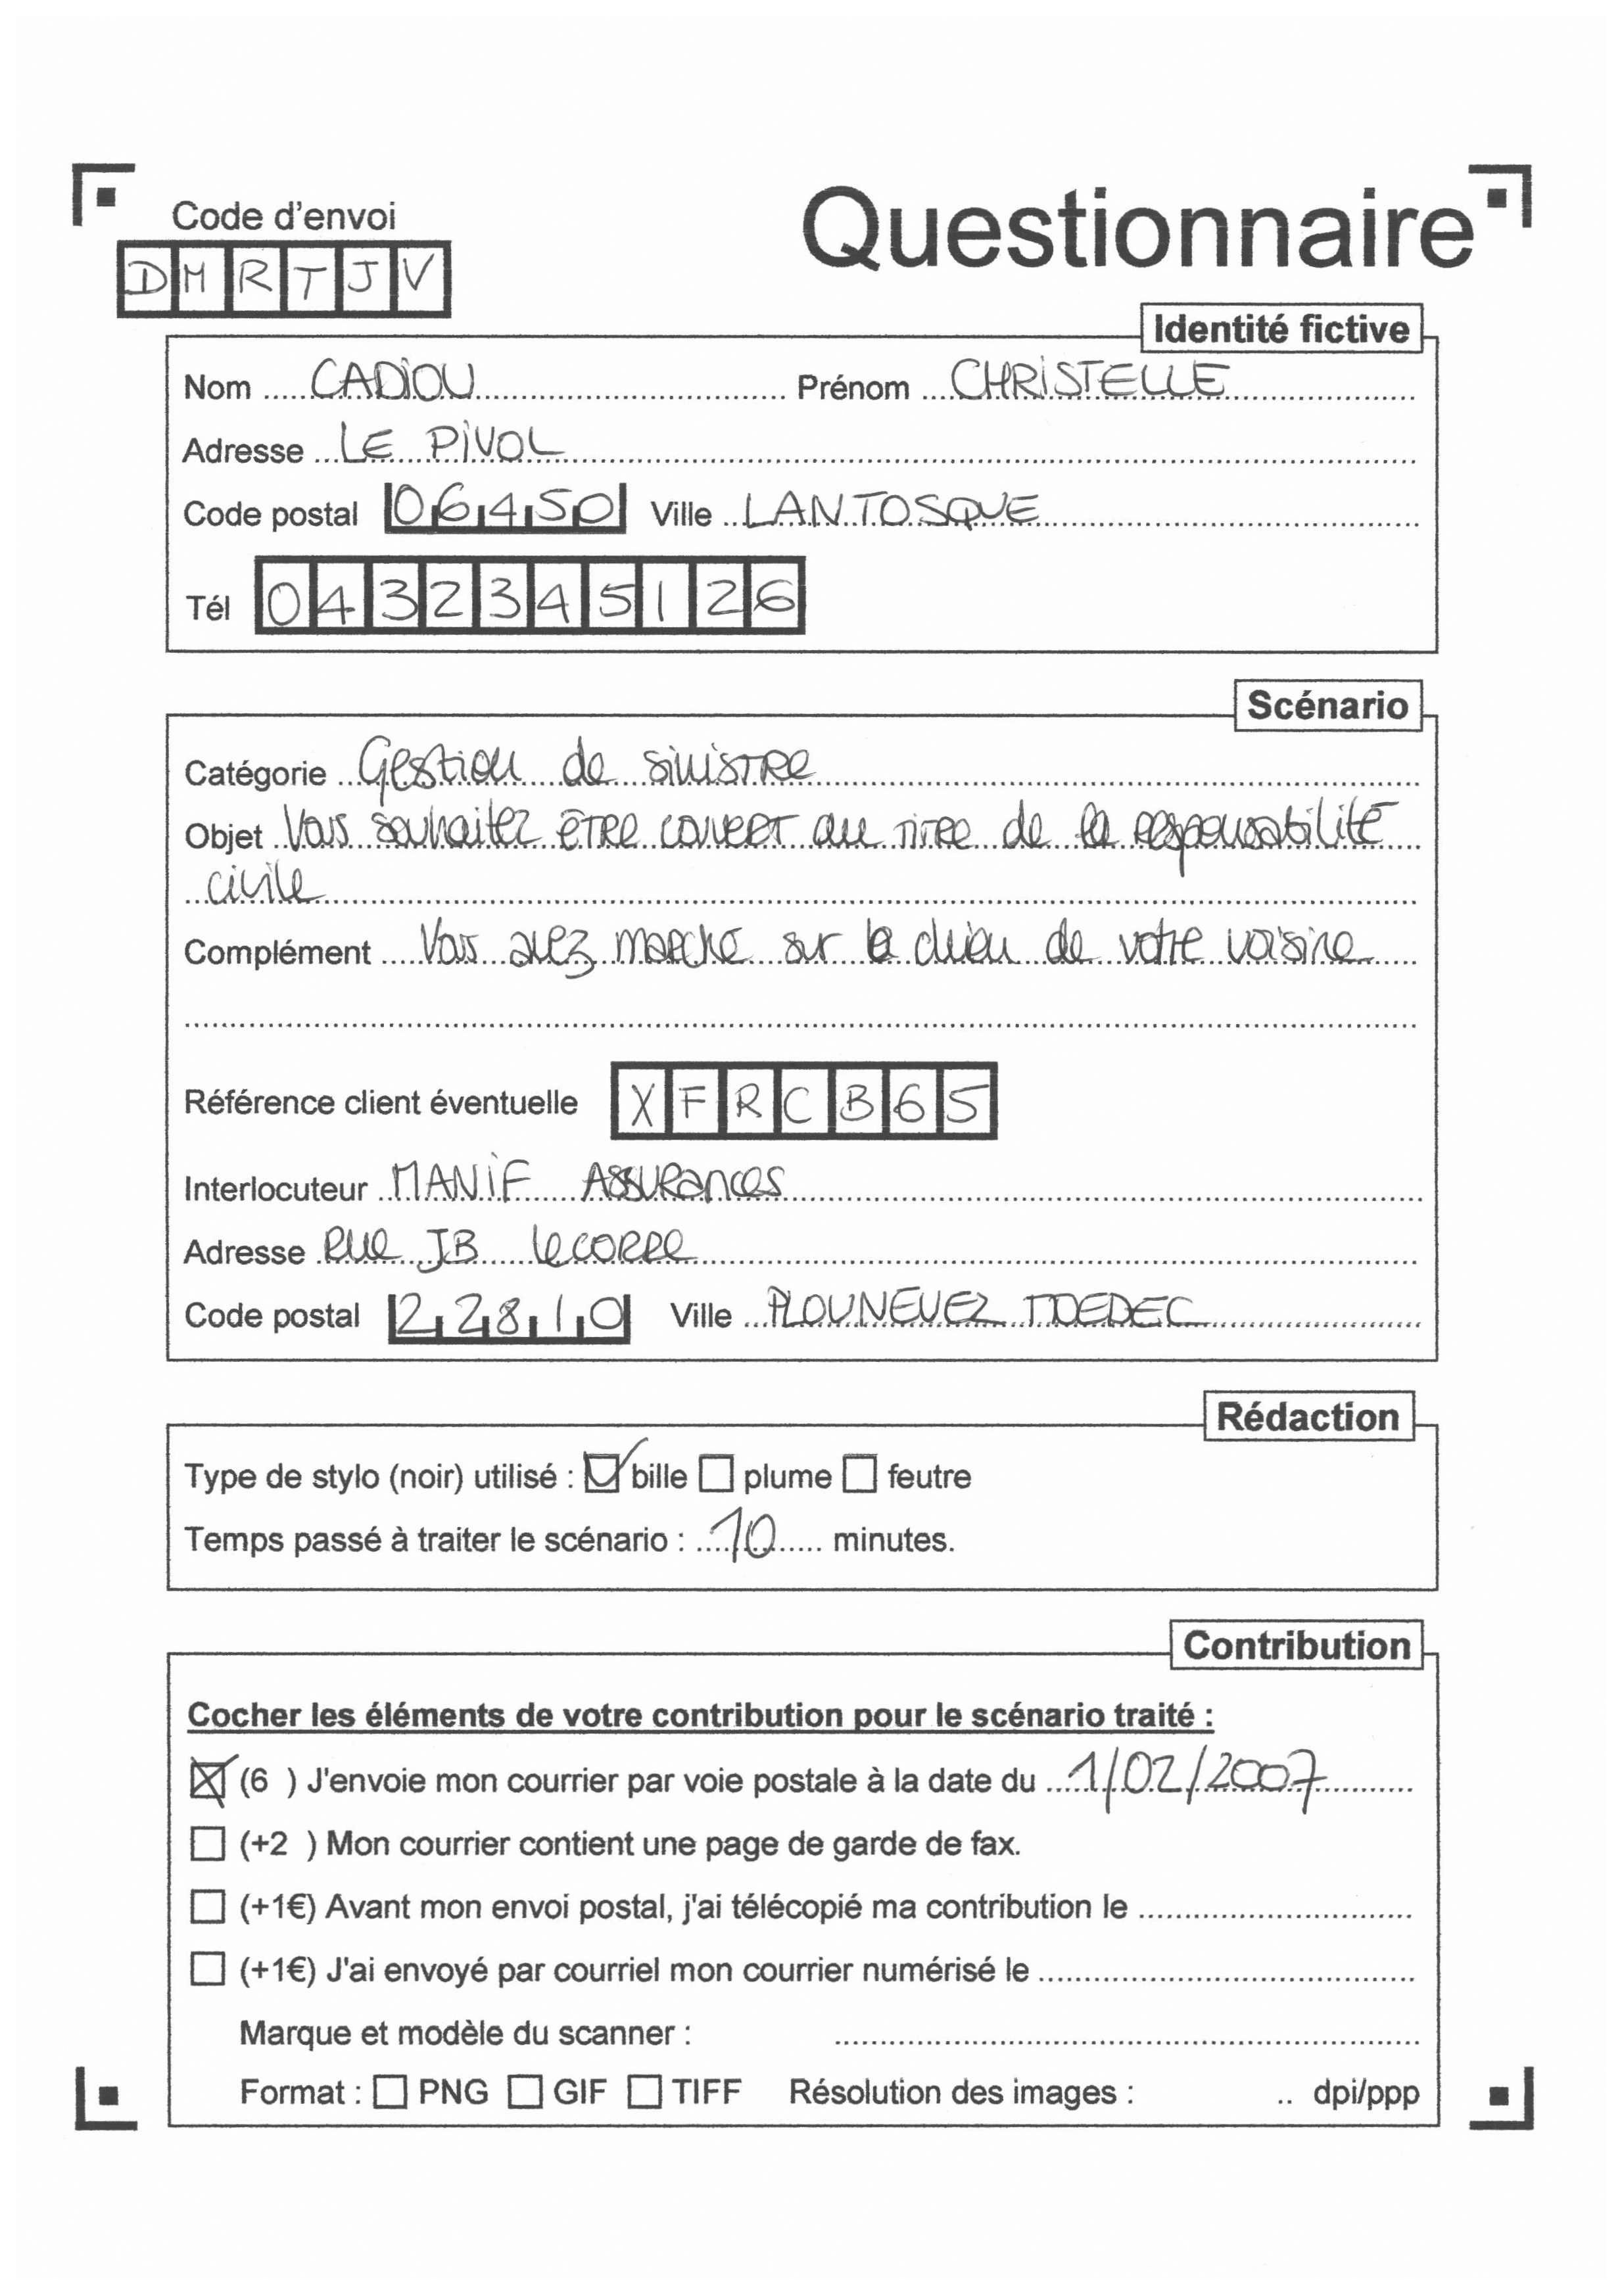 Code d'envoi
Questionnaire
DMRTJV
Identité fictive
Nom CADIOU Prénom CHRISTELLE
Adresse LE PIVOL
Code postal 06450 Ville LANTOSQUE
Tél 0432345126
Scénario
Catégorie Gestion de sinistre
Objet Vous souhaitez être couvert au titre de la responsabilité
civile
Complément Vous avez marché sur le chien de votre voisine
Référence client éventuelle XFRCB65
Interlocuteur MANIF Assurances
Adresse rue JB lecorre
Code postal 22810 Ville PLOUNEVEZ MOEDEC
Rédaction
Type de stylo (noir) utilisé : bille plume feutre
Temps passé à traiter le scénario : 10 minutes.
Contribution
Cocher les éléments de votre contribution pour le scénario traité :
(6 ) J'envoie mon courrier par voie postale à la date du 1/02/2007
(+2 ) Mon courrier contient une page de garde de fax.
(+1€) Avant mon envoi postal, j'ai télécopié ma contribution le
(+1€) J'ai envoyé par courriel mon courrier numérisé le
Marque et modèle du scanner :
Format : PNG GIF TIFF Résolution des images : .. dpi/ppp